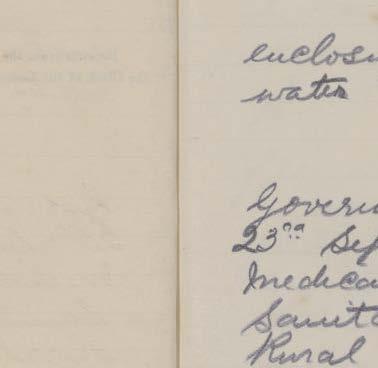 enclosi
water
Govern
23rd Sep
Medica
Sanita
Rural